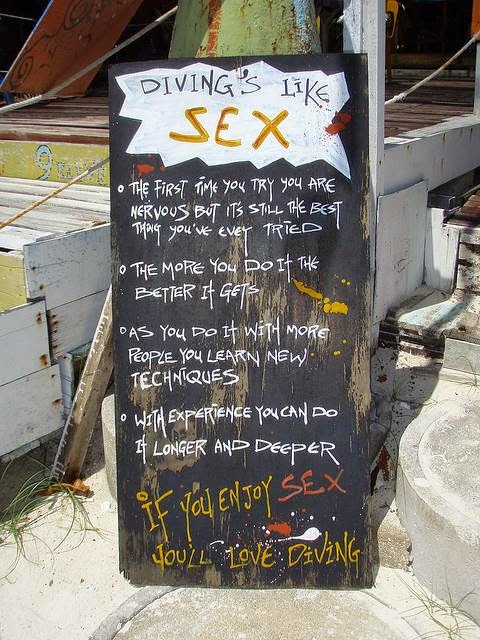 DIVING'S LIKE
SEX
THE FIRST TIME YOU TRY YOU ARE
NERVOUS BUT IT'S STILL THE BEST
THING YOU'VE EVEY TRIED
THE MORE YOU DO IT THE
BETTER IT GETS
AS YOU DO IT WITH MORE
PEOPLE YOU LEARN NEW
TECHNIQUES
WITH EXPERIENCE YOU CAN DO
IT LONGER AND DEEPER
IF YOU ENJOY SEX
YOU'LL LOVE DIVING
9